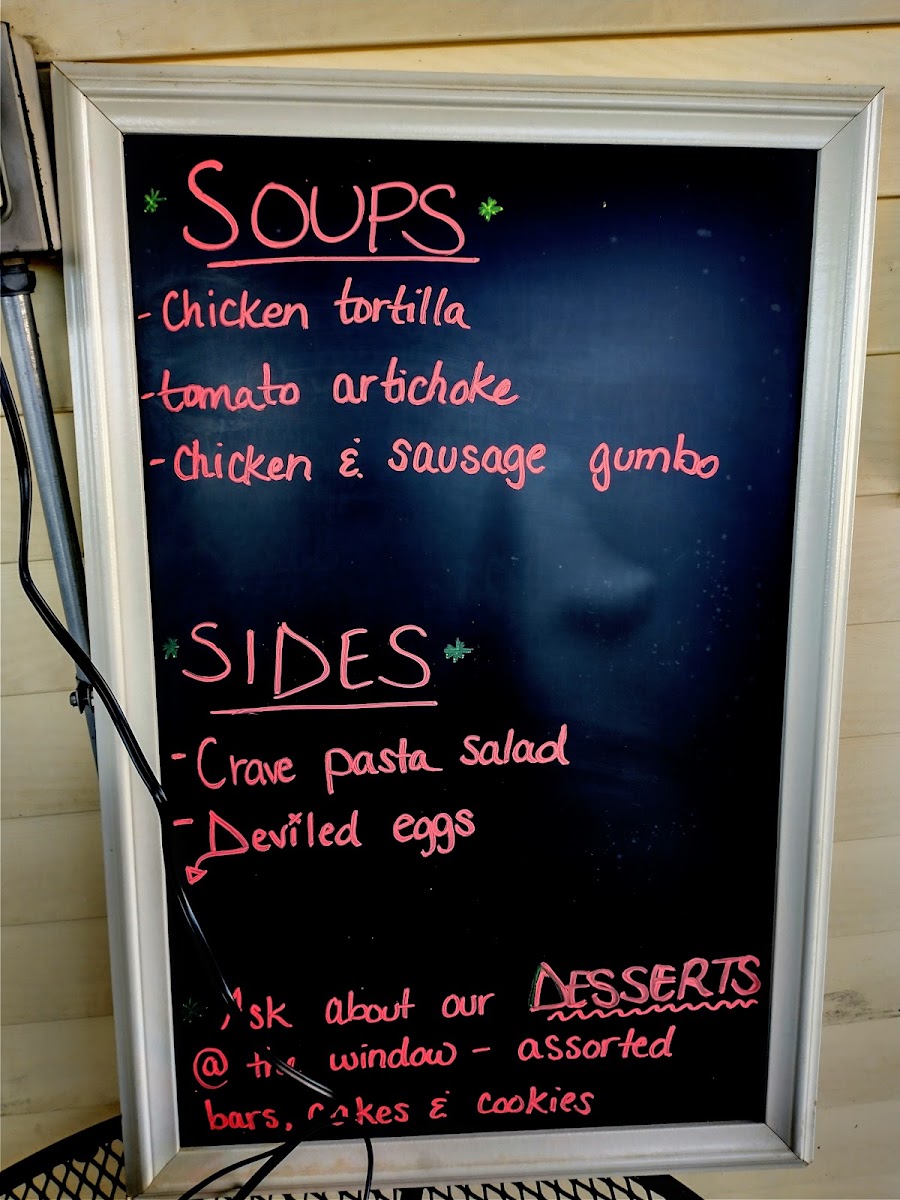 SOUPS
-Chicken tortilla
-tomato artichoke
-Chicken & sausage gumbo
SIDES
-Crave pasta salad
-Deviled eggs
Ask about our DESSERTS
@ the window - assorted
bars, cakes & cookies